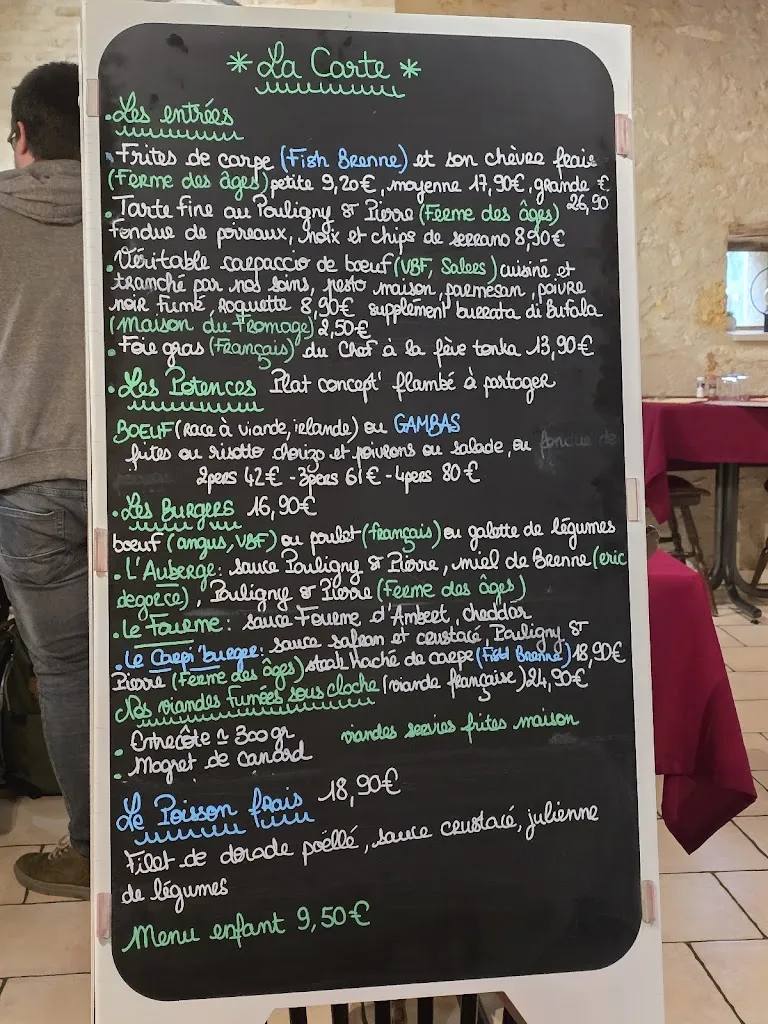 * La Carte *
• Les entrées
• Frites de carpe (Fish Brenne) et son chèvre frais
(Ferme des âges) petite 9,20€, moyenne 17,90€, grande €
26,90
• Tarte fine au Pouligny St Pierre (Ferme des âges)
fondue de poireaux, noix et chips de serrano 8,90€
• Véritable carpaccio de boeuf (VBF, Salers) cuisiné et
tranché par nos soins, pesto maison, parmesan, poivre
noir fumé, roquette 8,90€ supplément burrata di Bufala
(Maison du Fromage) 2,50€
• Foie gras (Français) du Chef à la fève tonka 13,90€
• Les Potences Plat concept' flambé à partager
BOEUF (race à viande, irlande) ou GAMBAS
frites ou risotto chorizo et poivrons ou salade, ou fondue de
2pers 42€ - 3pers 61€ - 4pers 80€
• Les Burgers 16,90€
boeuf (angus, VBF) ou poulet (français) ou galette de légumes
• L'Auberge: sauce Pouligny St Pierre, miel de Brenne (eric
degorce), Pouligny St Pierre (Ferme des âges)
• Le Fourme: sauce Fourme d'Ambert, cheddar
• Le Carpi'burger: sauce safran et crustacé, Pouligny St
Pierre (Ferme des âges) steak haché de carpe (Fish Brenne) 18,90€
Nos viandes fumées sous cloche (viande française) 24,90€
• Entrecôte ≃ 300gr viandes servies frites maison
• Magret de canard
Le Poisson frais 18,90€
Filet de dorade poëllé, sauce crustacé, julienne
de légumes
Menu enfant 9,50€